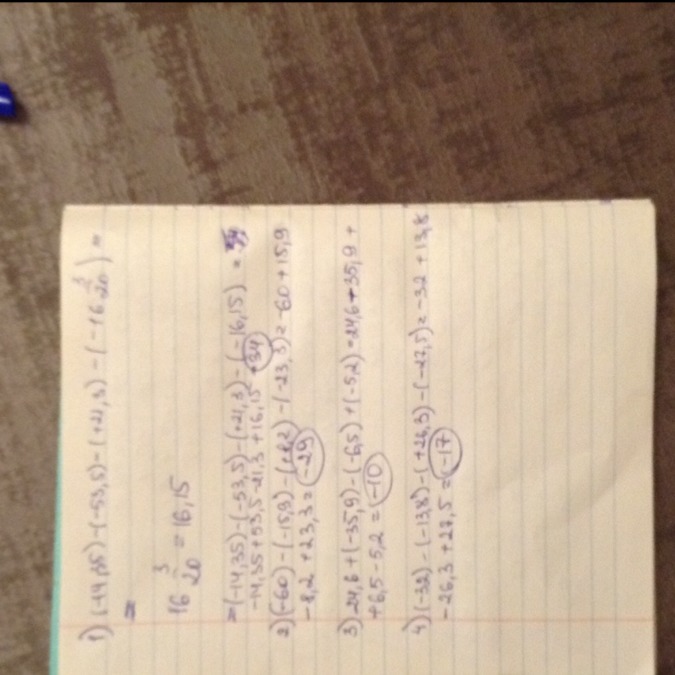 1) (-14,35)-(-53,5)-(+21,3)-(-16 3/20) =
=
16 3/20 = 16,15
=(-14,35)-(-53,5)-(+21,3)-(-16,15) =
-14,35+53,5-21,3+16,15 = 34
2) (-60)-(-15,9)-(+8,2)-(-23,3)=-60+15,9
-8,2+23,3=-29
3) 24,6+(-35,9)-(-6,5)+(-5,2)=24,6-35,9+
+6,5-5,2=-10
4) (-32)-(-13,8)-(+26,3)-(-27,5)=-32+13,8
-26,3+27,5=-17